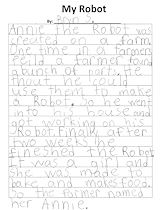 My Robot
By: Bryn S.
Annie the Robot was
created on a farm.
One time in a farmers
feild a farmer found
a bunch of parts. He
thout he could
use them to make
a Robot. So he went
into house and
got working on his
Robot. Finally after
two weeks he
fineshed the Robot.
It was a girl and
She was made to
bake and make food.
So the farmer names
her Annie.